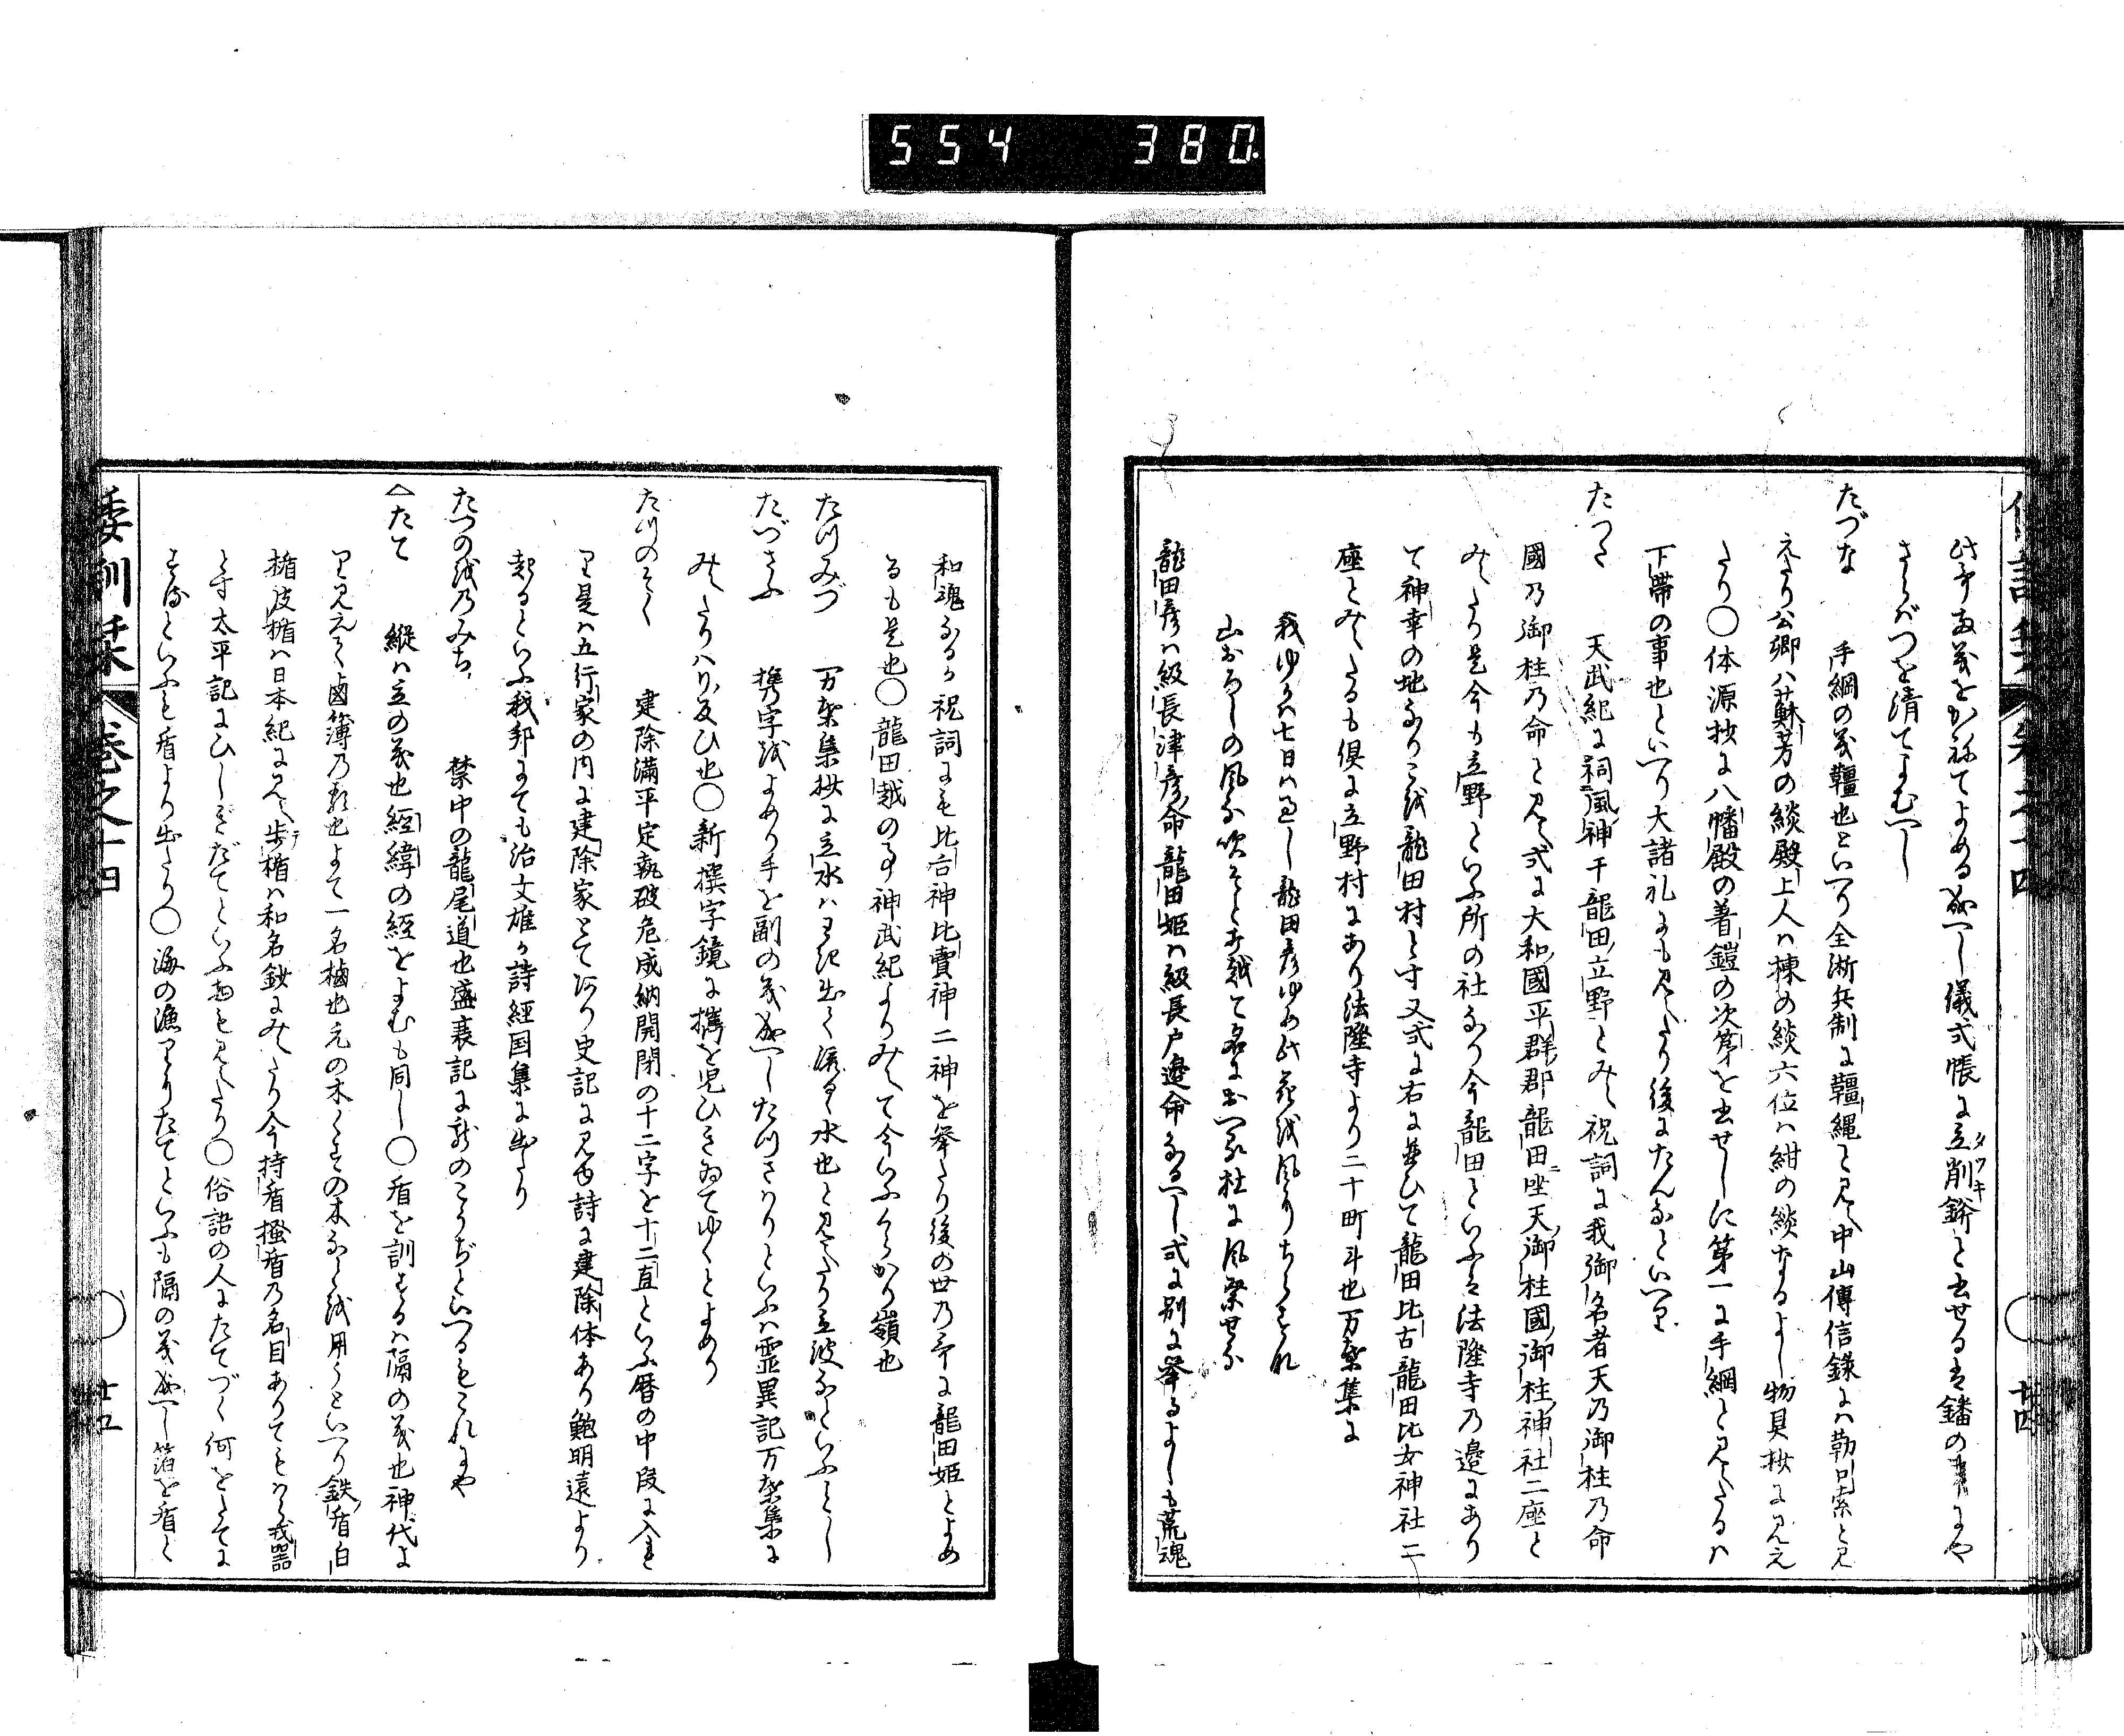 554 380
此等両義をかねてよめる成へし儀式帳に立削鉾と書せるは鐇の事にや
タツキ
さらばつを清てよむへし
たづな 手綱の義韁也といへり全淅兵制に韁縄と見え中山傳信錄には勒口索と見
えたり公卿ハ蘇芳の緂殿上人ハ楝の緂六位ハ紺の緂なるよし物具抄に見え
たり○体源抄に八幡殿の着鎧の次第を書せしに第一に手綱と見えたるハ
下帶の事也といへり大諸礼にも見えたり後にたんなといへり
たつた 天武紀に祠風神于龍田立野とみえ祝詞に我御名者天乃御柱乃命
國乃御柱乃命と見え式に大和國平群郡龍田坐天御柱國御柱神社二座と
ニ
みえたり是今も立野といふ所の社なり今龍田といふは法隆寺乃邉にあり
て神幸の地なりこれを龍田村と寸又式に右に並ひて龍田比古龍田比女神社二
座とみえたるも倶に立野村にあり法隆寺より二十町斗也万葉集に
我ゆきハ七日ハ過し龍田彦ゆめ此花を風にちらすな
山おろしの風な吹そと打越て名に出へる杜に風祭せな
龍田彦ハ級長津彦命龍田姫ハ級長戸邉命なるへし式に別に挙るよしも荒魂
倭訓栞 巻之十四 廿四
和魂なるか祝詞にも比古神比賣神二神を挙たり後の世乃哥に龍田姫とよめ
るも是也○龍田越の事神武紀よりみえて今いふくらかり嶺也
たつみづ 万葉集抄に立水ハわき出て流るゝ水也と見えたり立波なといふことし
たづさふ 携字をよめり手を副の義成へしたつさハりといふハ霊異記万葉集に
みえたりハリ反ひ也○新撰字鏡に攜を児ひきゐてゆくとよめり
たつのそく 建除満平定執破危成納開閉の十二字を十二直といふ暦の中段に入る
り是ハ五行家の内に建除家とてあり史記に見ゆ詩に建除体あり鮑明遠より
起るといふ我邦にても治文雄か詩経国集に出たり
たつのをのみち 禁中の龍尾道也盛衰記に龍のこうぢといへるもこれにや
△たて 縦ハ立の義也經緯の経をよむも同し○盾を訓するハ隔の義也神代よ
り見えて鹵簿乃類也よて一名樐也元の木くすの木なとを用うといへり鉄盾白
楯皮楯ハ日本紀に見え歩楯ハ和名鈔にみえたり今持盾掻盾乃名目ありてもはら戎器
テ
と寸太平記にひしぎだてといふ物も見えたり○俗語の人にたてづく何をたてに
するといふも盾より出たり○海の漁りたてといふも隔の義成へし箔を盾と
倭訓栞 巻之十四 廿五